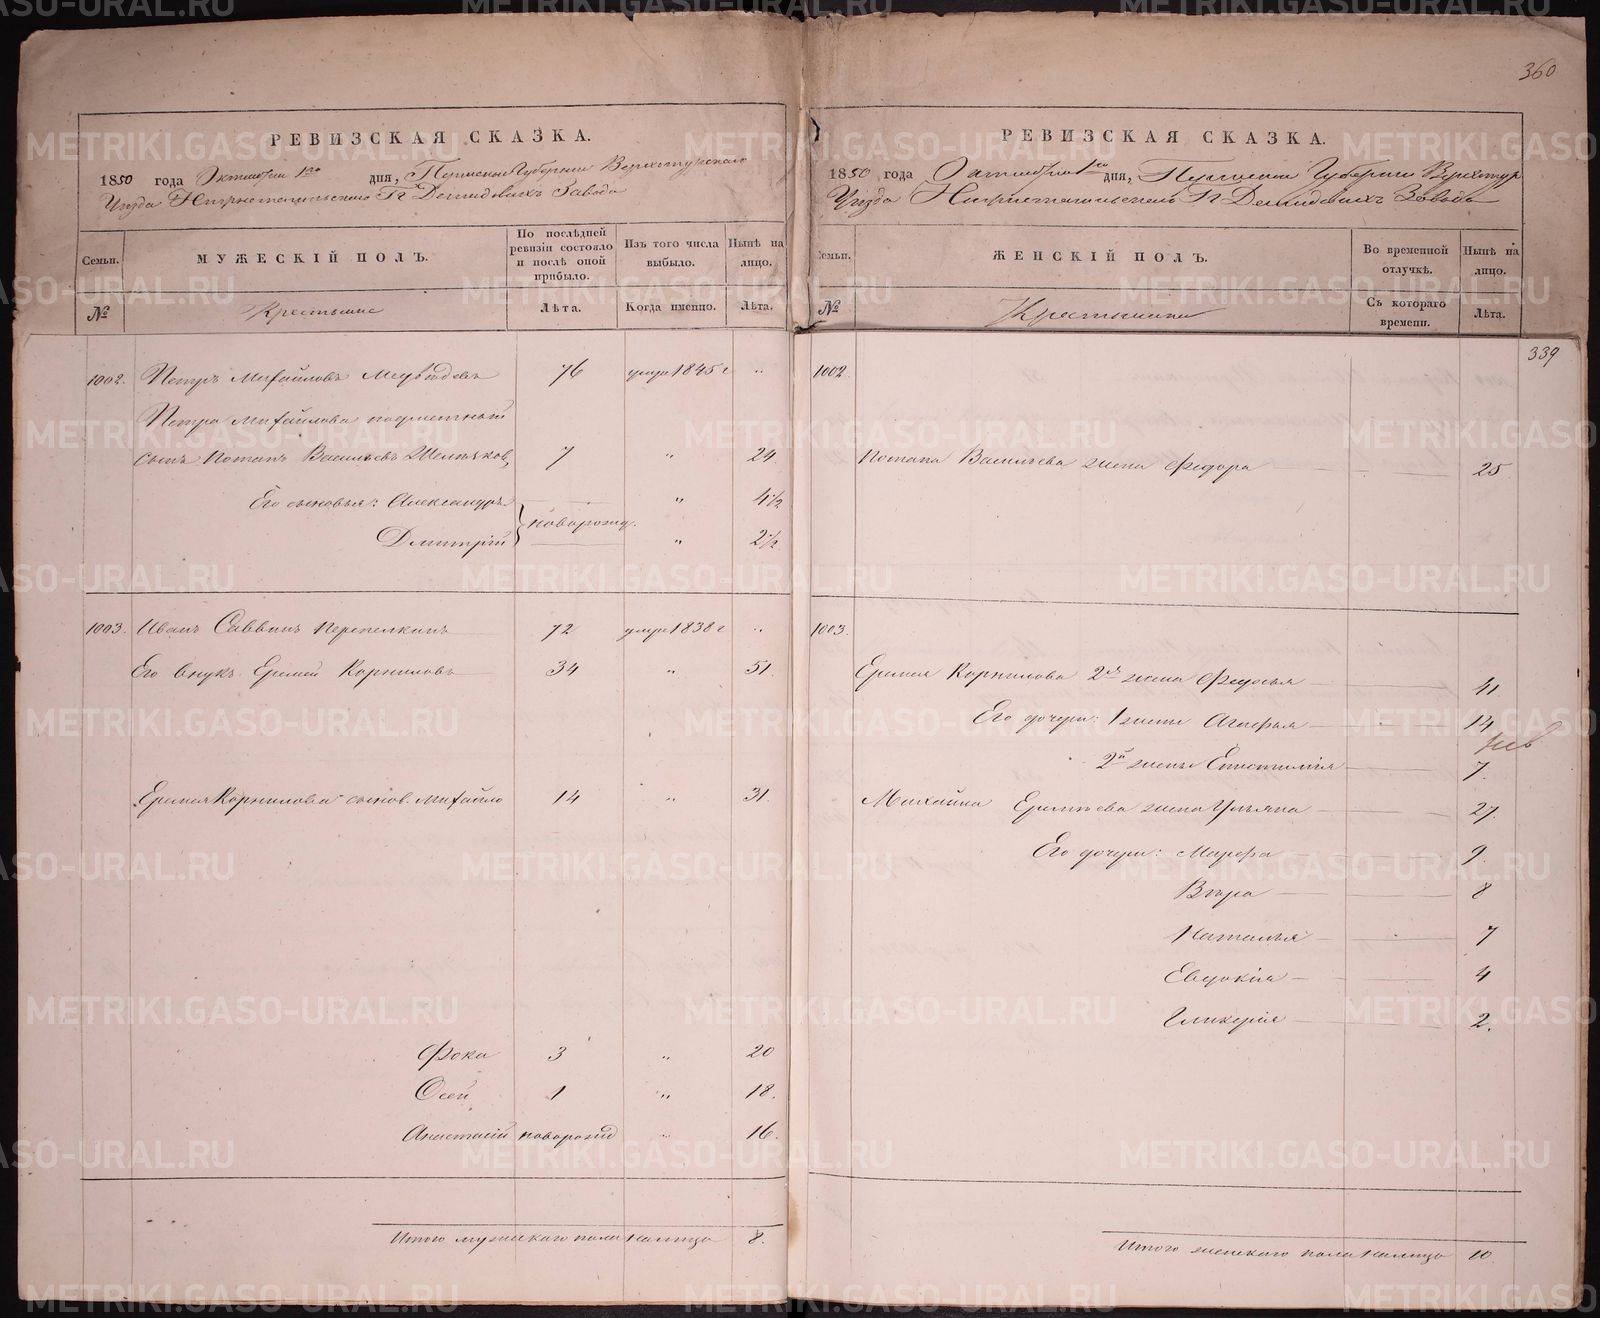 360
РЕВИЗСКАЯ СКАЗКА.
1850 года Октября 1го дня, Пермской Губернии Верхотурскаго
Уезда Нижнетагильскаго Гг Демидовыхъ Завода
Семьи.
МУЖЕСКІЙ ПОЛЪ.
По послѣдней ревизіи состояло и послѣ оной прибыло.
Изъ того числа выбыло.
Нынѣ на лицо.
№
Крестьяне
Лѣта.
Когда именно.
Лѣта.
1002. Петръ Михайловъ Медведевъ 76 умре 1845 г "
Петра Михайлова
сынъ Потапъ Васильевъ 7 " 24
Его сыновья: Александръ " 4 1/2
новорожд.
Дмитрій " 2 1/2
1003. Иванъ Саввинъ Перепелкинъ 72 умре 1838 г "
Его внукъ Еремей Корниловъ 34 " 51.
Еремея Корнилова сынов. Михайло 14 " 31.
Фока 3 " 20
Осей 1 " 18.
Анастасій новорожд " 16.
Итого мужескаго пола налицо 8.
РЕВИЗСКАЯ СКАЗКА.
1850 года Октября 1го дня, Пермской Губерніи Верхотур
Уезда Нижнетагильскаго Гг Демидовыхъ Завода
Семьи.
ЖЕНСКІЙ ПОЛЪ.
Во временной отлучкѣ.
Нынѣ на лицо.
№
Крестьянки
Съ котораго времени.
Лѣта.
339
1002
Потапа Васильева жена Федора 25
1003.
Еремея Корнилова 2я жена Федосья 41
Его дочери: 1 жены Агафья 14
2й жены 7.
Михайла Еремеева жена Ульяна 27
Его дочери: Марфа 9.
Вера 8
Наталья 7
Евдокія 4
Гликерія 2.
Итого женскаго пола налицо 10
METRIKI.GASO-URAL.RU